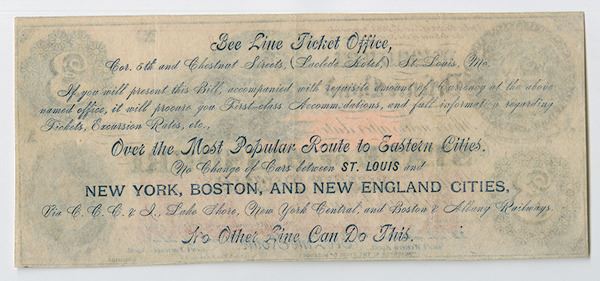 Bee Line Ticket Office,
Cor. 5th and Chestnut Streets, (Laclede Hotel,) St. Louis, Mo.
If you will present this Bill, accompanied with requisite amount of Currency at the above
named office, it will procure you First-class Accommodations, and full information regarding
Tickets, Excursion Rates, etc.,
Over the Most Popular Route to Eastern Cities.
No Change of Cars between ST. LOUIS and
NEW YORK, BOSTON, AND NEW ENGLAND CITIES,
Via C. C. C. & I., Lake Shore, New York Central, and Boston & Albany Railways.
No Other Line Can Do This.